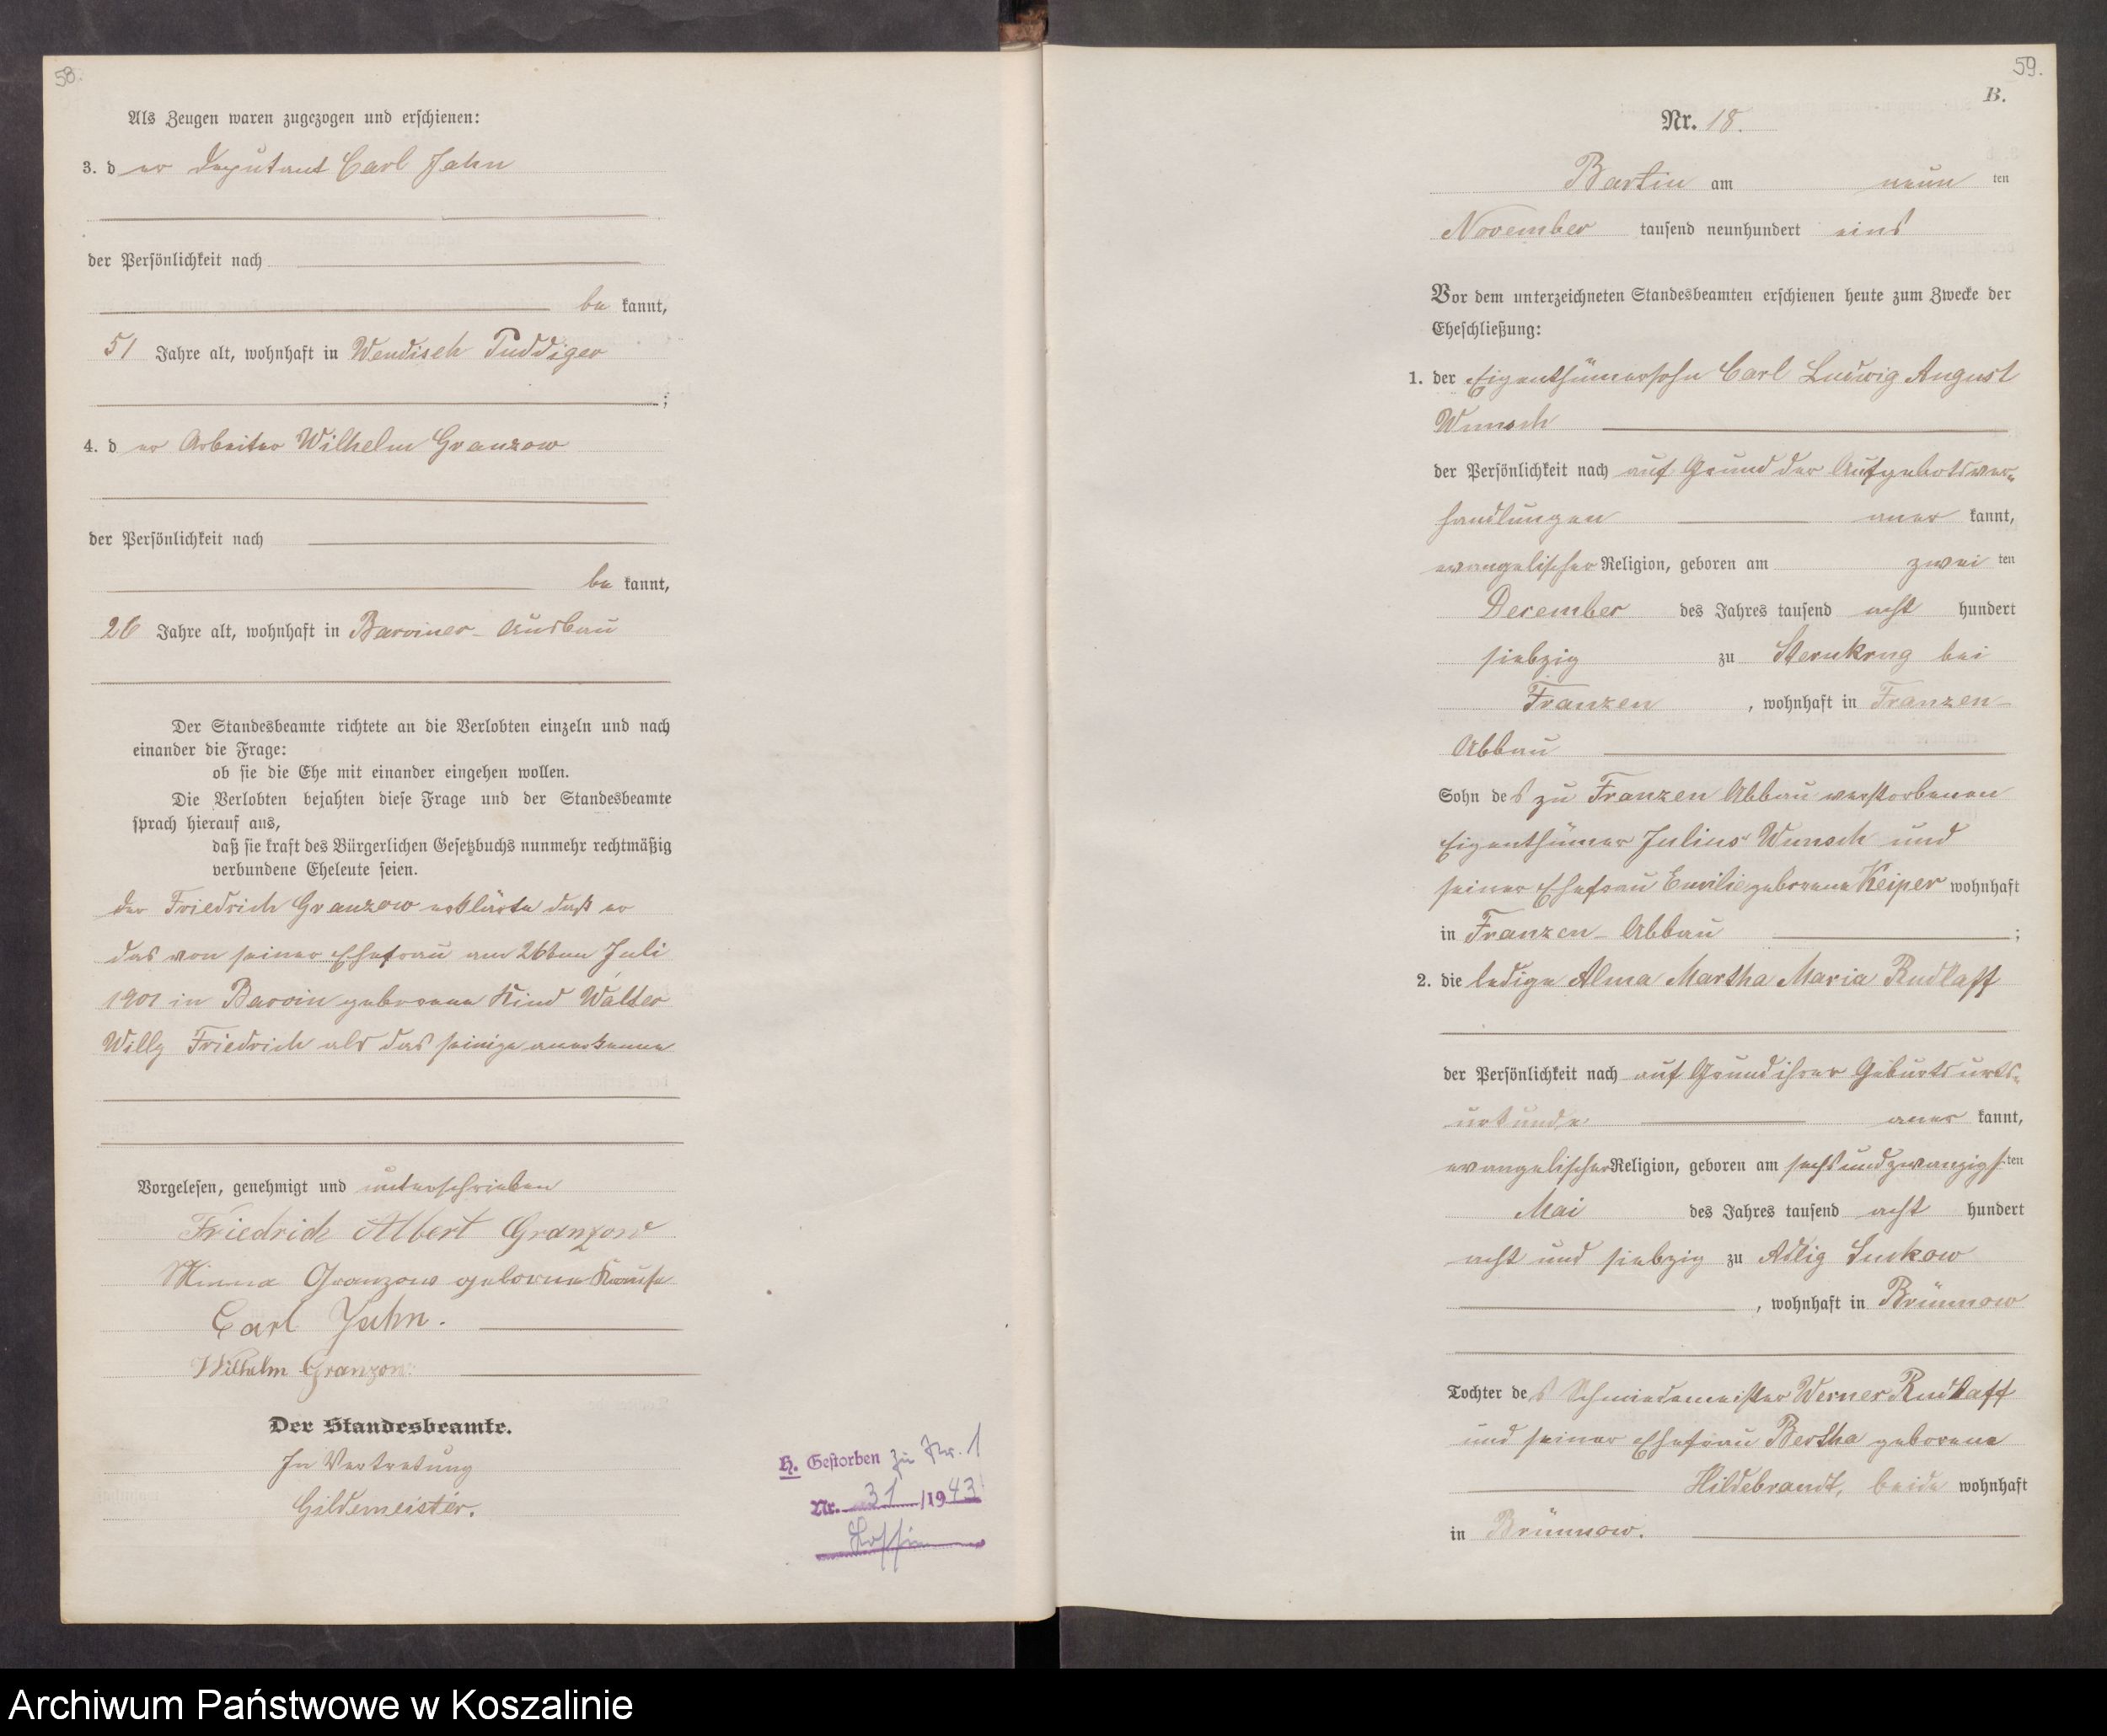 58.
Als Zeugen waren zugezogen und erschienen:
3. der Deputant Carl Jahn
der Persönlichkeit nach
be kannt,
51 Jahre alt, wohnhaft in Wendisch Puddiger
;
4. der Arbeiter Wilhelm Granzow
der Persönlichkeit nach
be kannt,
26 Jahre alt, wohnhaft in Barviner-Ausbau
Der Standesbeamte richtete an die Verlobten einzeln und nach
einander die Frage:
ob sie die Ehe mit einander eingehen wollen.
Die Verlobten bejahten diese Frage und der Standesbeamte
sprach hierauf aus,
daß sie kraft des Bürgerlichen Gesetzbuchs nunmehr rechtmäßig
verbundene Eheleute seien.
der Friedrich Granzow erklärte daß er
das von seiner Ehefrau am 26ten Juli
1901 in Barvin geborene Kind Walter
Willy Friedrich als das seinige anerkenne
Vorgelesen, genehmigt und unterschrieben
Friedrich Albert Granzow
Minna Granzow geborne Krause
Carl Jahn.
Wilhelm Granzow.
Der Standesbeamte.
In Vertretung
Gildemeister.
H. Gestorben zu Nr. 1
Nr. 31 /1943
59.
B.
Nr. 18.
Bartin am neun ten
November tausend neunhundert eins
Vor dem unterzeichneten Standesbeamten erschienen heute zum Zwecke der
Eheschließung:
1. der Eigenthümersohn Carl Ludwig August
Wunsch
der Persönlichkeit nach auf Grund der Aufgebotsver-
handlungen aner kannt,
evangelischer Religion, geboren am zwei ten
December des Jahres tausend acht hundert
siebzig zu Sternkrug bei
Franzen , wohnhaft in Franzen-
Abbau
Sohn des zu Franzen Abbau verstorbenen
Eigenthümer Julius Wunsch und
seiner Ehefrau Emilie geborene Keiper wohnhaft
in Franzen-Abbau ;
2. die ledige Alma Martha Maria Rudkaff
der Persönlichkeit nach auf Grund ihrer Geburtsurts-
urkunde aner kannt,
evangelischer Religion, geboren am sechsundzwanzigs ten
Mai des Jahres tausend acht hundert
acht und siebzig zu Adlig Suckow
, wohnhaft in Brünnow
Tochter des Schmiedemeister Werner Rudkaff
und seiner Ehefrau Bertha geborene
Hildebrandt, beide wohnhaft
in Brünnow.
Archiwum Państwowe w Koszalinie